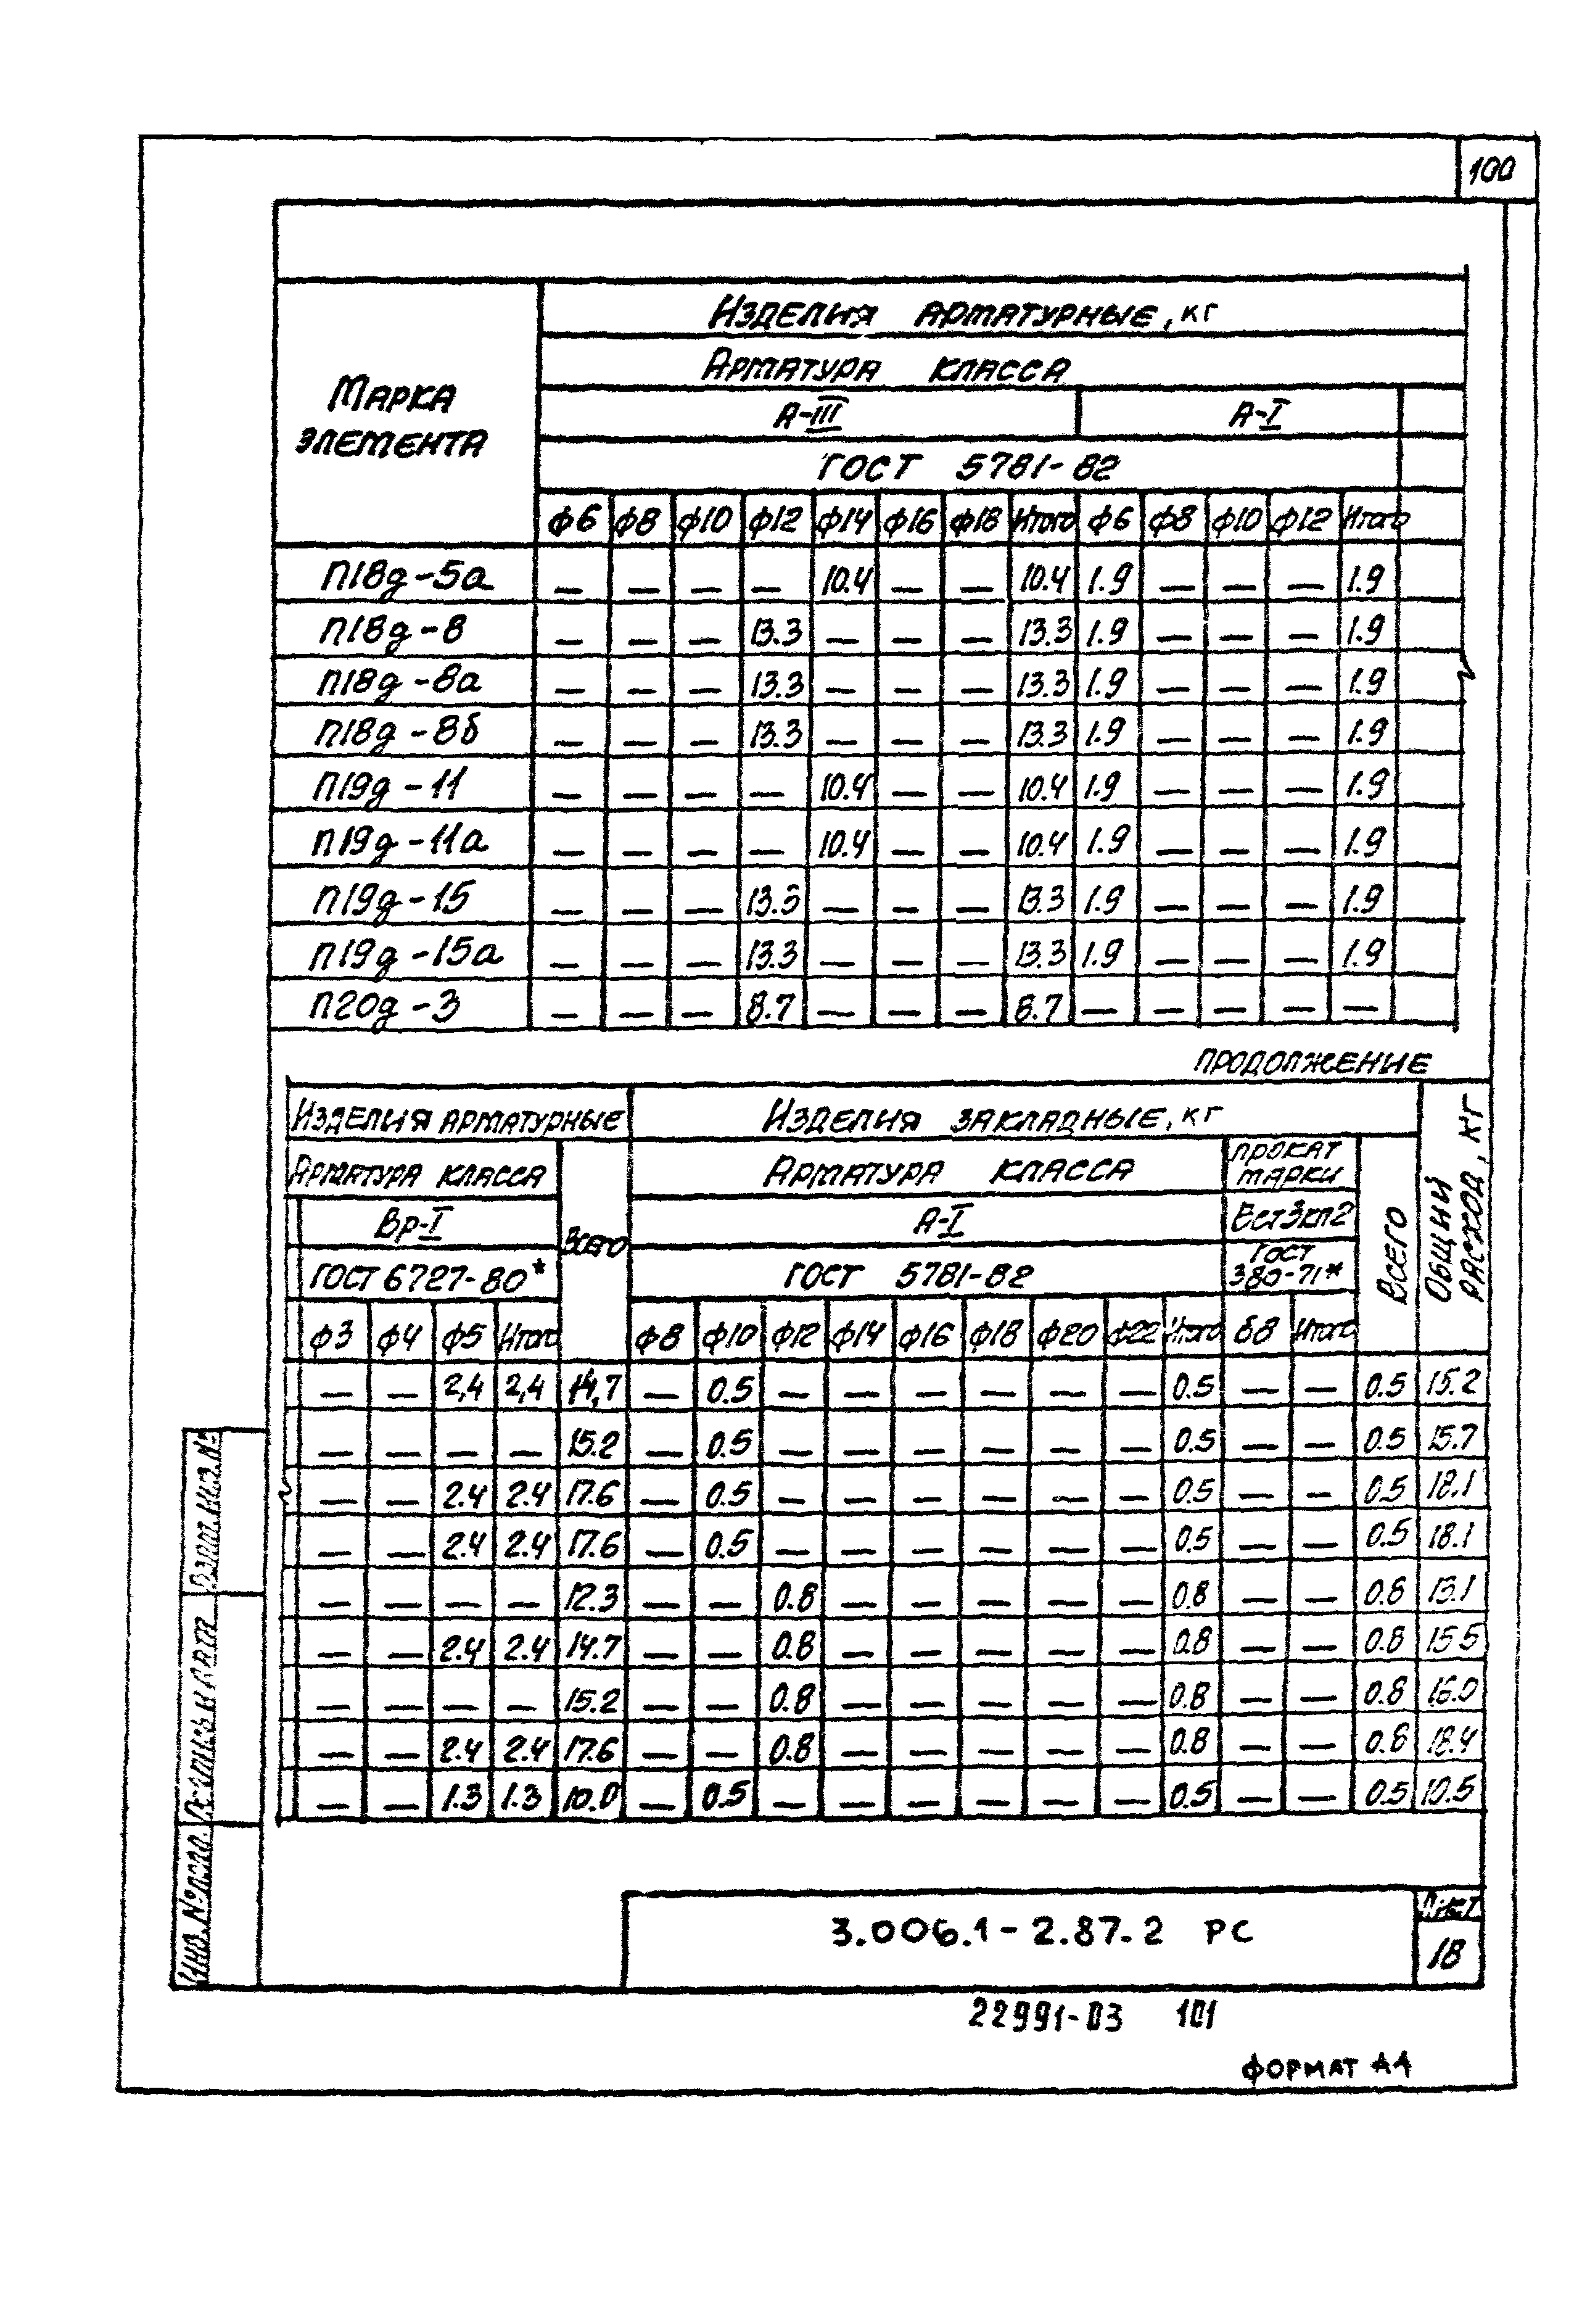 100
Изделия арматурные, кг
Арматура класса
Марка элемента
А-III А-I
ГОСТ 5781-82
ф6 ф8 ф10 ф12 ф14 ф16 ф18 Итого ф6 ф8 ф10 ф12 Итого
П18д-5а — — — — 10.4 — — 10.4 1.9 — — — 1.9
П18д-8 — — — 13.3 — — — 13.3 1.9 — — — 1.9
П18д-8а — — — 13.3 — — — 13.3 1.9 — — — 1.9
П18д-8б — — — 13.3 — — — 13.3 1.9 — — — 1.9
П19д-11 — — — — 10.4 — — 10.4 1.9 — — — 1.9
П19д-11а — — — — 10.4 — — 10.4 1.9 — — — 1.9
П19д-15 — — — 13.3 — — — 13.3 1.9 — — — 1.9
П19д-15а — — — 13.3 — — — 13.3 1.9 — — — 1.9
П20д-3 — — — 8.7 — — — 8.7 — — — — —
продолжение
Изделия арматурные Изделия закладные, кг Общий расход, кг
Арматура класса Всего Арматура класса прокат марки Всего
Вр-I А-I ВСт3кп2
ГОСТ 6727-80* ГОСТ 5781-82 ГОСТ 380-71*
ф3 ф4 ф5 Итого ф8 ф10 ф12 ф14 ф16 ф18 ф20 ф22 Итого δ8 Итого
— — 2,4 2,4 14,7 — 0.5 — — — — — — 0.5 — — 0.5 15.2
— — — — 15.2 — 0.5 — — — — — — 0.5 — — 0.5 15.7
— — 2.4 2.4 17.6 — 0.5 — — — — — — 0.5 — — 0.5 18.1
— — 2.4 2.4 17.6 — 0.5 — — — — — — 0.5 — — 0.5 18.1
— — — — 12.3 — — 0.8 — — — — — 0.8 — — 0.8 13.1
— — 2.4 2.4 14.7 — — 0.8 — — — — — 0.8 — — 0.8 15.5
— — — — 15.2 — — 0.8 — — — — — 0.8 — — 0.8 16.0
— — 2.4 2.4 17.6 — — 0.8 — — — — — 0.8 — — 0.8 18.4
— — 1.3 1.3 10.0 — 0.5 — — — — — — 0.5 — — 0.5 10.5
Взам. инв. №
Подпись и дата
Инв. № подл.
3.006.1-2.87.2 РС
Лист
18
22991-03 101
формат А4